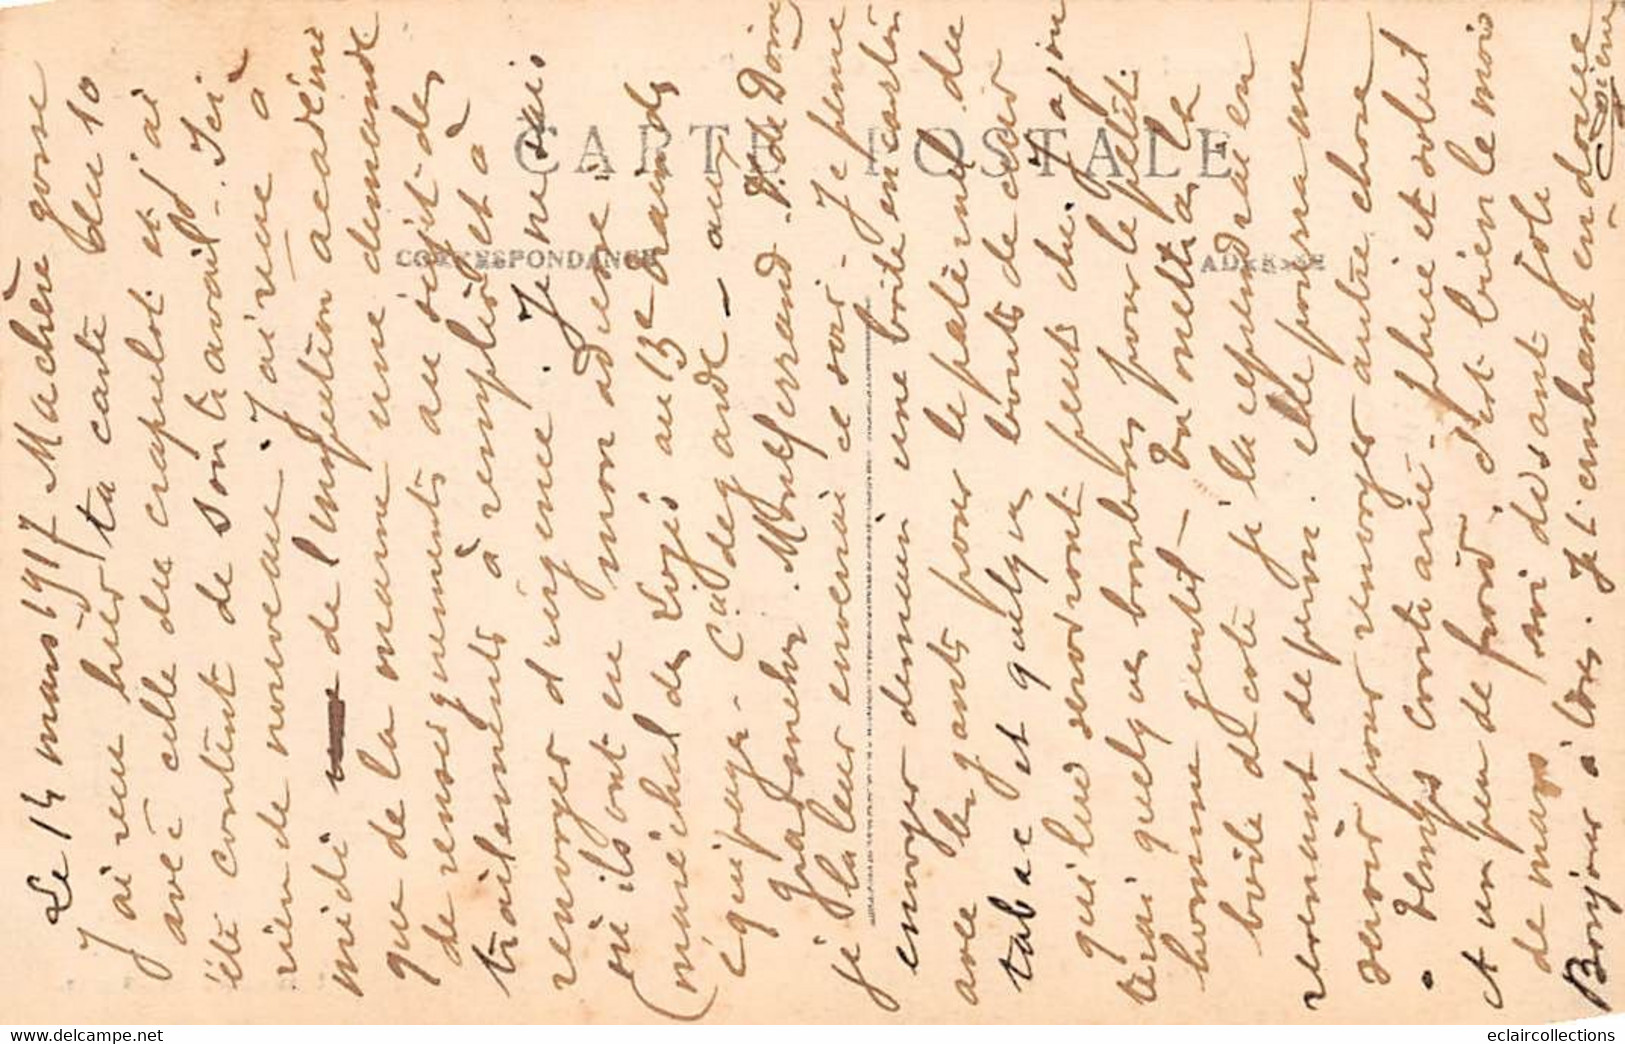 CARTE POSTALE
CORRESPONDANCE
ADRESSE
Le 14 mars 1917 Ma chère gosse
J'ai reçu hier ta carte du 10
avec celle du crapulot et j'ai
été content de son travail. Ici
rien de nouveau. J'ai reçu à
midi de l'inspection académi
que de la marne une demande
de renseignements au sujet des
traitements à remplir et à
renvoyer d'urgence. Je ne sais
où ils ont eu mon adresse
(maréchal des Logis au 13e
équipage - Cie de garde - aux
Gravanches. Montferrand. P. de Dôme)
je la leur enverrai ce soir - Je pense
envoyer demain une boite en carton
avec les gants pour le paternel du
tabac et quelques bouts de cuir
qui leur serviront peut être. J'ajou
terai quelques bonbons pour le petit
homme gentil - Tu mettras la
boite de côté je la reprendrai en
revenant de perm. elle pourra me
servir pour renvoyer autre chose
. Temps contrarié - pluie et soleil
et un peu de froid, c'est bien le mois
de mars soi disant joli
Bonjour à tous. Je t'embrasse en douce
Pierre
eclaircollections